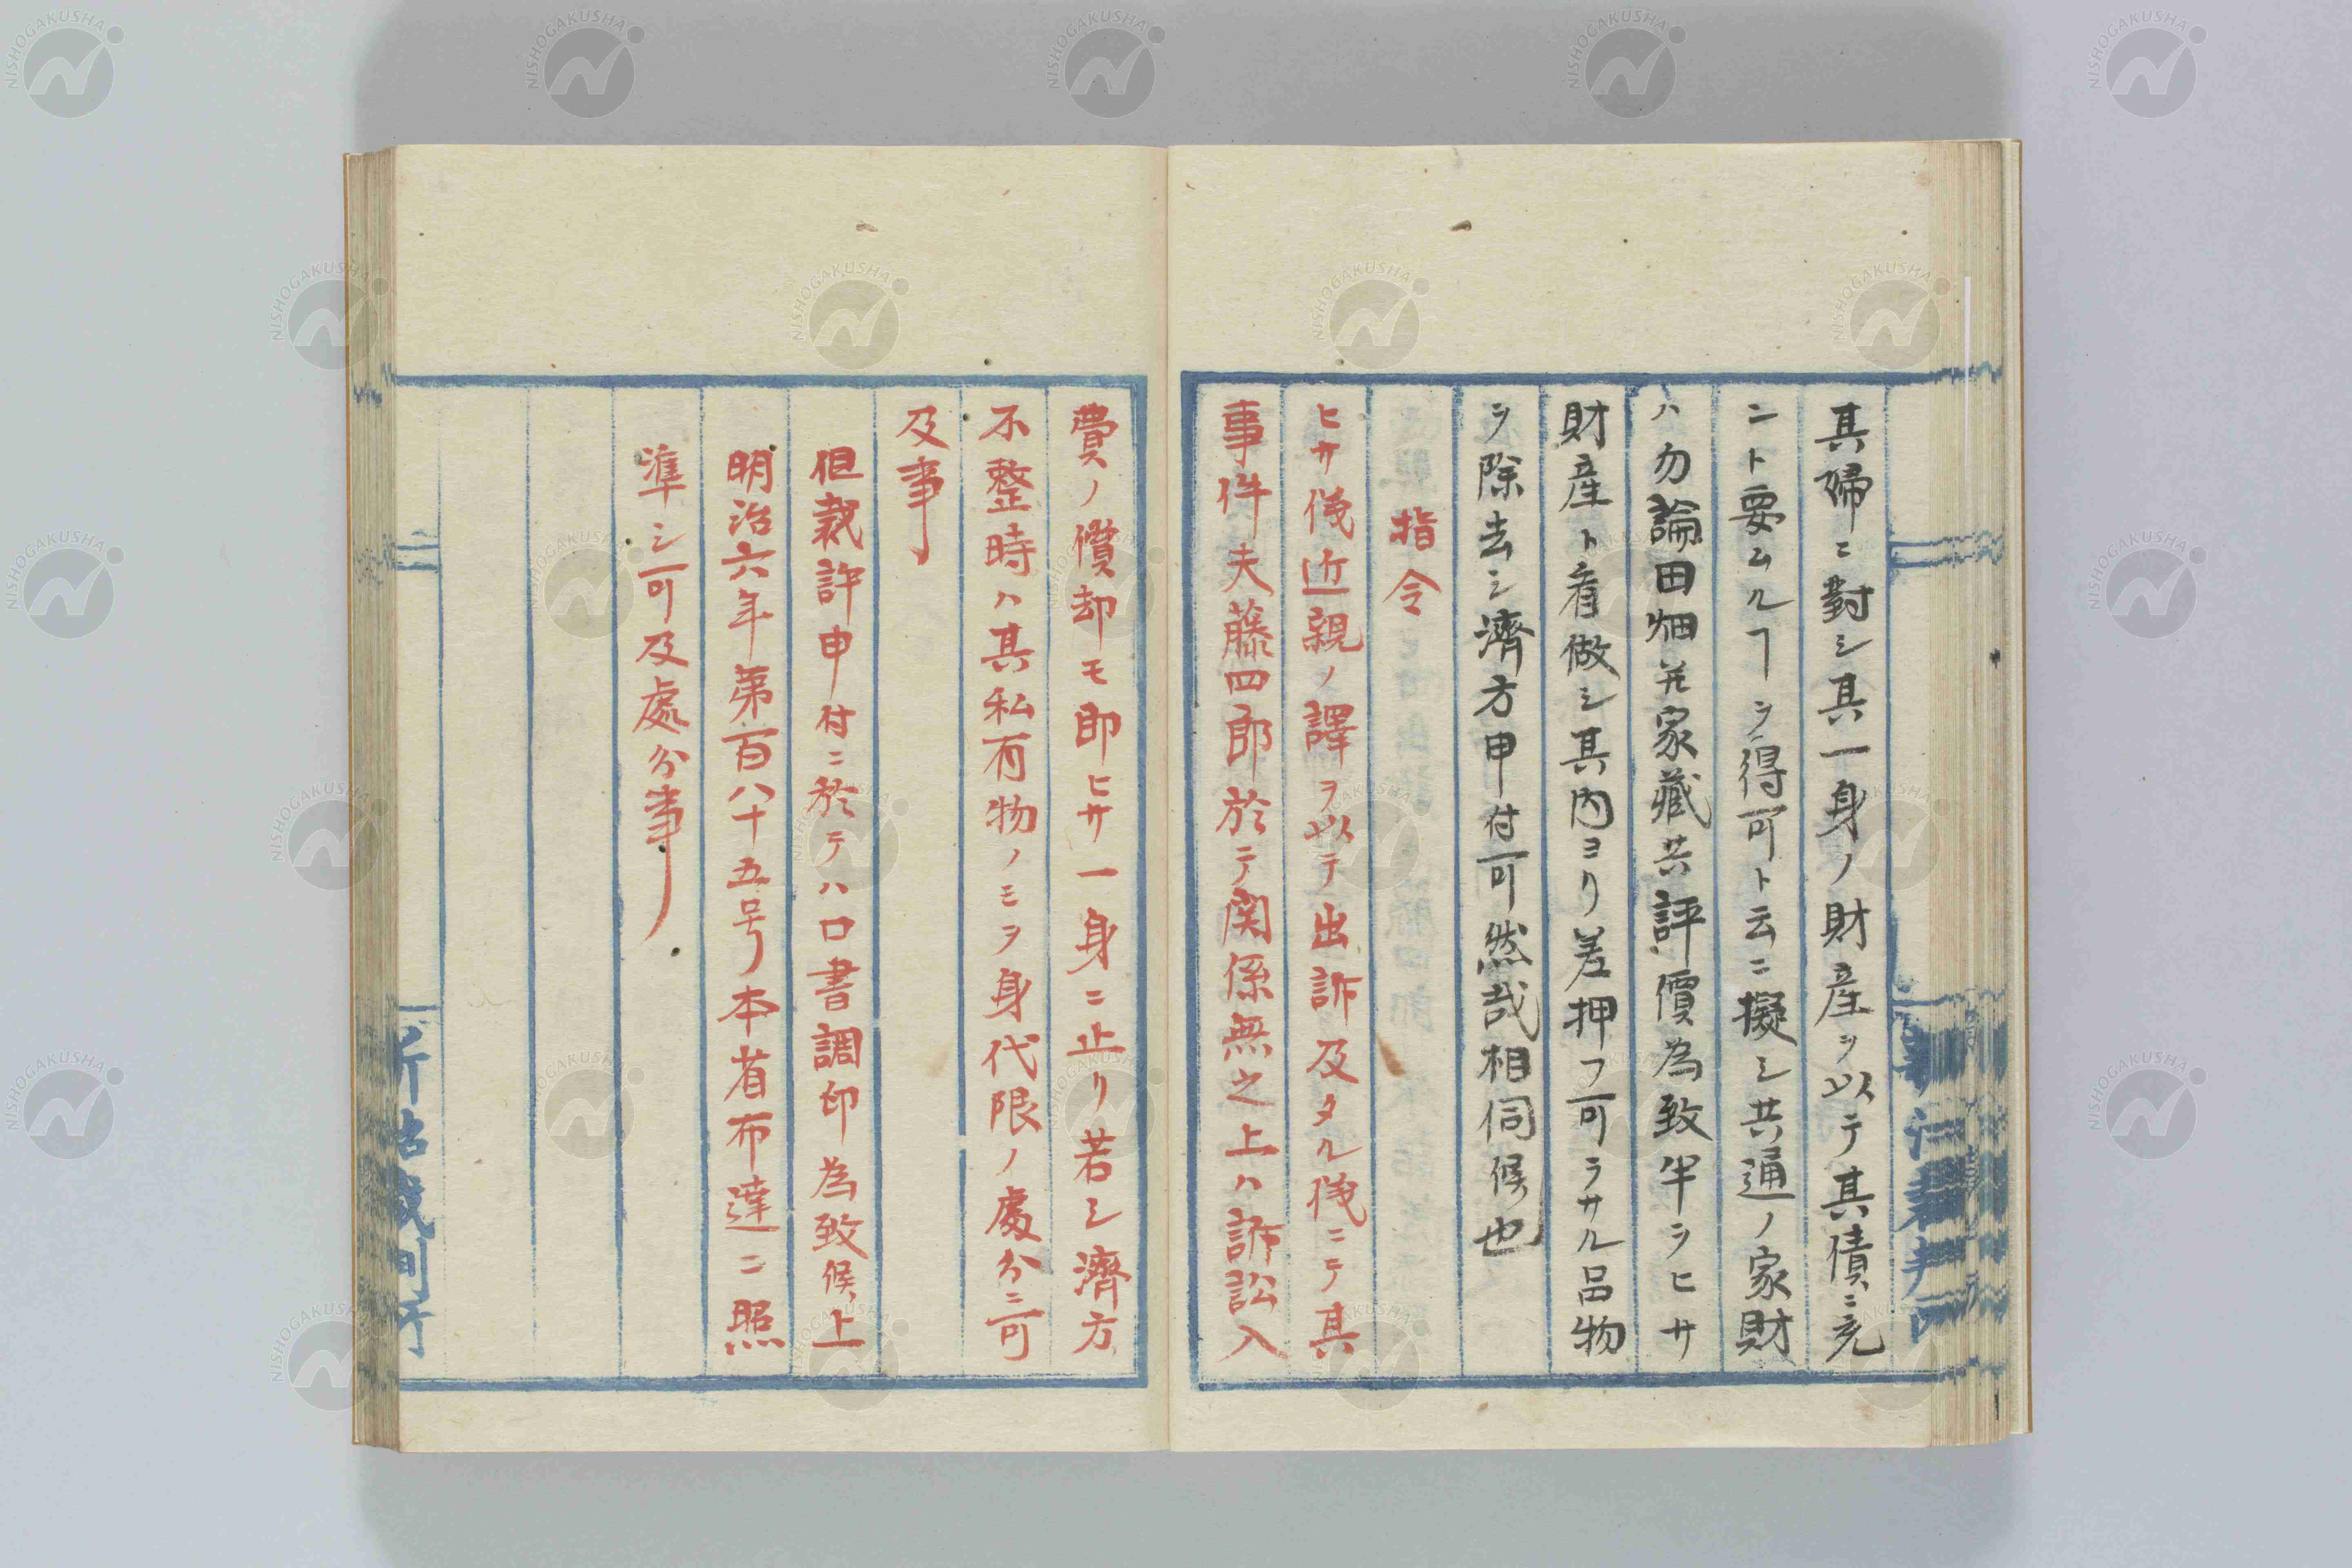 其婦ニ對シ其一身ノ財産ヲ以テ其債ニ充
ント要ムルヿヲ得可ト云ニ擬シ共通ノ家財
ハ勿論田畑并家藏共評價為致半ラヒサ
財産ト看做シ其内ヨリ差押フ可ラサル品物
ヲ除去シ濟方申付可然哉相伺候也
指令
ヒサ儀近親ノ譯ヲ以テ出訴及タル儀ニテ其
事件夫藤四郎於テ関係無之上ハ訴訟入
費ノ償却モ即ヒサ一身ニ止リ若シ濟方
不整時ハ其私有物ノミヲ身代限ノ處分ニ可
及事
但裁許申付ニ於テハ口書調印為致候上
明治六年第百八十五号本省布達ニ照
準シ可及處分事
NISHOGAKUSHA